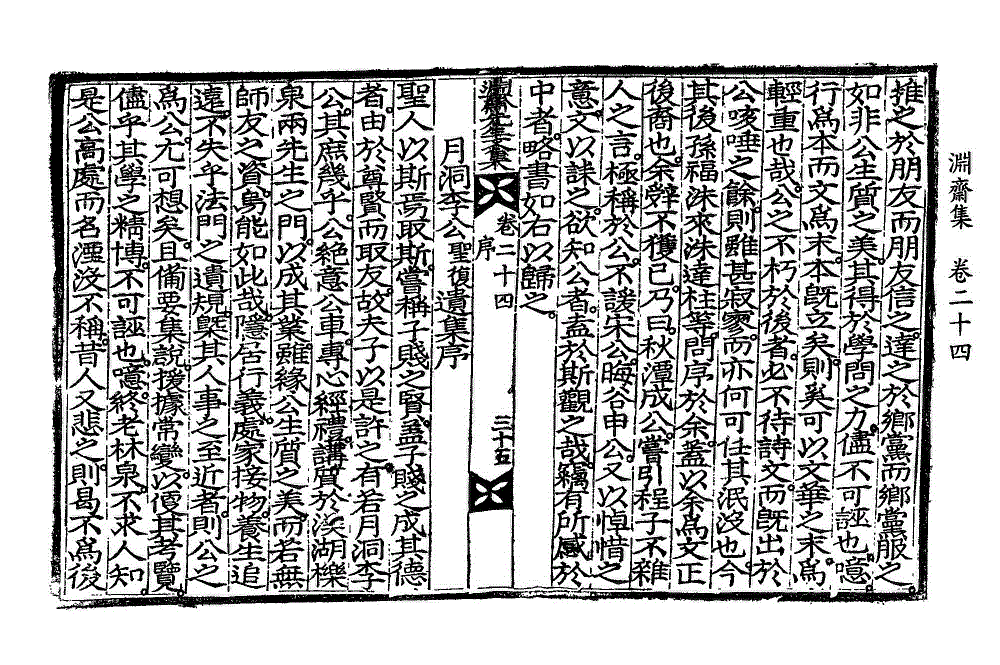 淵齋集 卷二十四
推之於朋友而朋友信之。達之於鄕黨而鄕黨服之。
如非公生質之美。其得於學問之力。儘不可誣也。噫。
行爲本而文爲末。本旣立矣。則奚可以文華之末。爲
輕重也哉。公之不朽於後者。必不待詩文。而旣出於
公咳唾之餘。則雖甚寂寥。而亦何可任其泯沒也。今
其後孫福洙來洙達柱等。問序於余。蓋以余爲文正
後裔也。余辭不獲已。乃曰。秋潭成公。嘗引程子不雜
人之言。極稱於公。不諼宋公,晦谷申公。又以悼惜之
意。文以誄之。欲知公者。盍於斯觀之哉。竊有所感於
中者。略書如右以歸之。
淵齋先生文集 卷二十四 序 三十五
月洞李公 聖復 遺集序
聖人以斯焉取斯。嘗稱子賤之賢。蓋子賤之成其德
者。由於尊賢而取友。故夫子以是許之。有若月洞李
公。其庶幾乎。公絶意公車。專心經禮。講質於渼湖,櫟
泉兩先生之門。以成其業。雖緣公生質之美。而若無
師友之資。曷能如此哉。隱居行義。處家接物。養生追
遠。不失乎法門之遺規。曁其人事之至近者。則公之
爲公。尤可想矣。且備要集說。援據常變。以便其考覽。
儘乎其學之精博。不可誣也。噫。終老林泉。不求人知。
是公高處。而名湮沒不稱。昔人又悲之。則曷不爲後